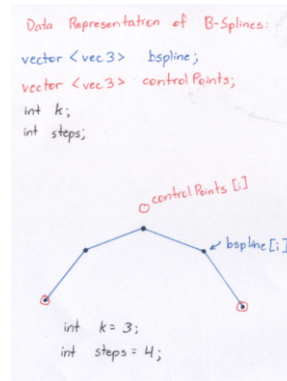 Data Representation of B-Splines:
vector <vec3> bspline;
vector <vec3> controlPoints;
int k;
int steps;
controlPoints [i]
bspline [i]
int k = 3;
int steps = 4;